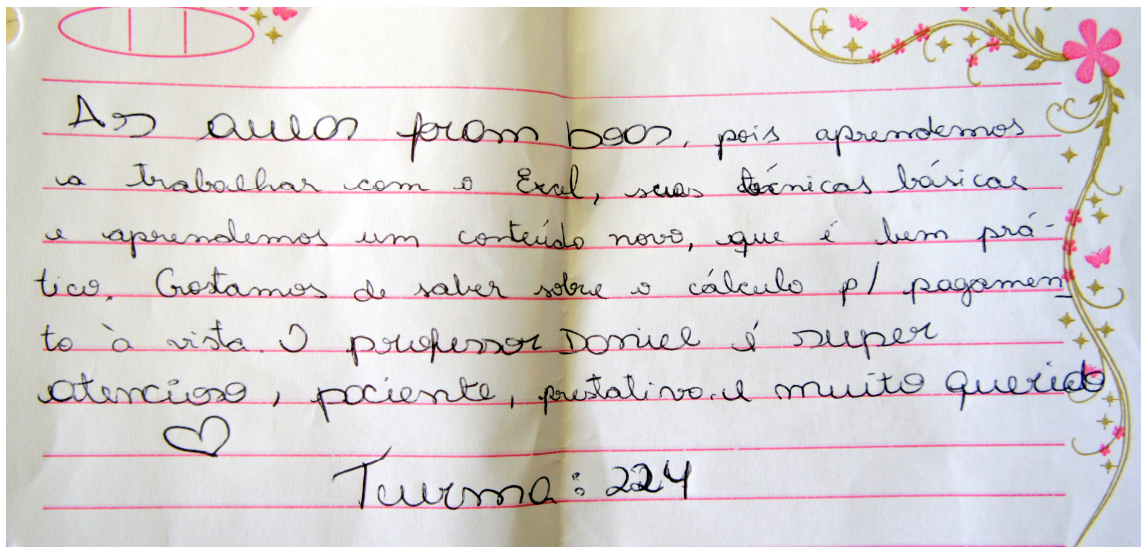 As aulas foram boas, pois aprendemos
a trabalhar com o Excel, suas técnicas básicas
e aprendemos um conteúdo novo, que é bem prá-
tico. Gostamos de saber sobre o cálculo p/ pagamen_
to à vista. O professor Daniel é super
atencioso, paciente, prestativo e muito querido
Turma: 224